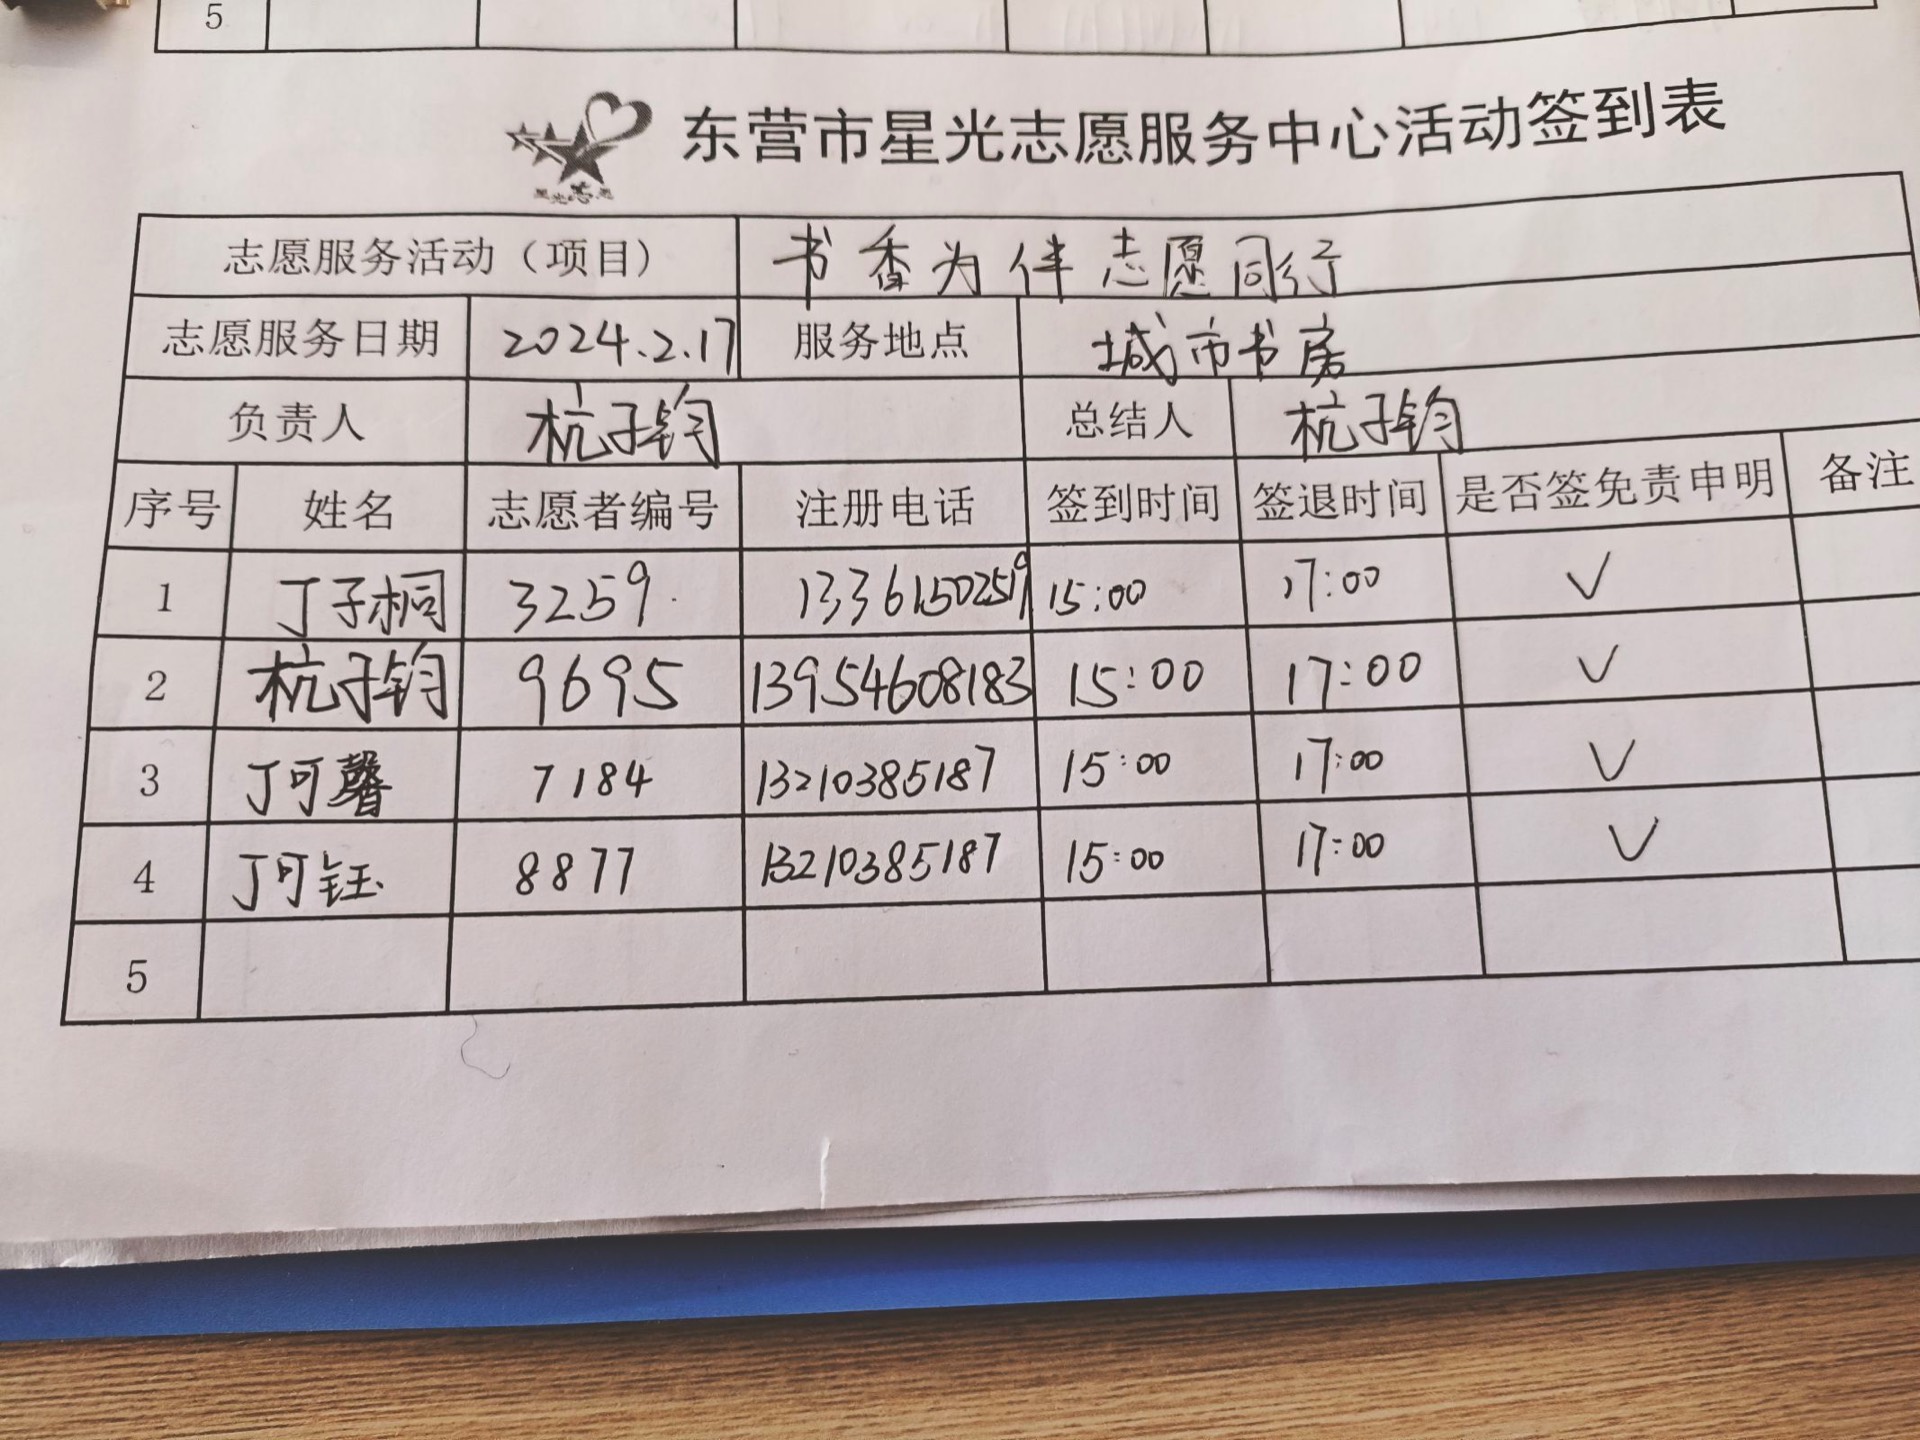 5
星光志愿
东营市星光志愿服务中心活动签到表
志愿服务活动（项目） 书香为伴 志愿同行
志愿服务日期 2024.2.17 服务地点 城市书房
负责人 杭子钧 总结人 杭子钧
序号 姓名 志愿者编号 注册电话 签到时间 签退时间 是否签免责申明 备注
1 丁子桐 3259 13361502519 15:00 17:00 √
2 杭子钧 9695 13954608183 15:00 17:00 √
3 丁可馨 7184 13210385187 15:00 17:00 √
4 丁可钰 8877 13210385187 15:00 17:00 √
5